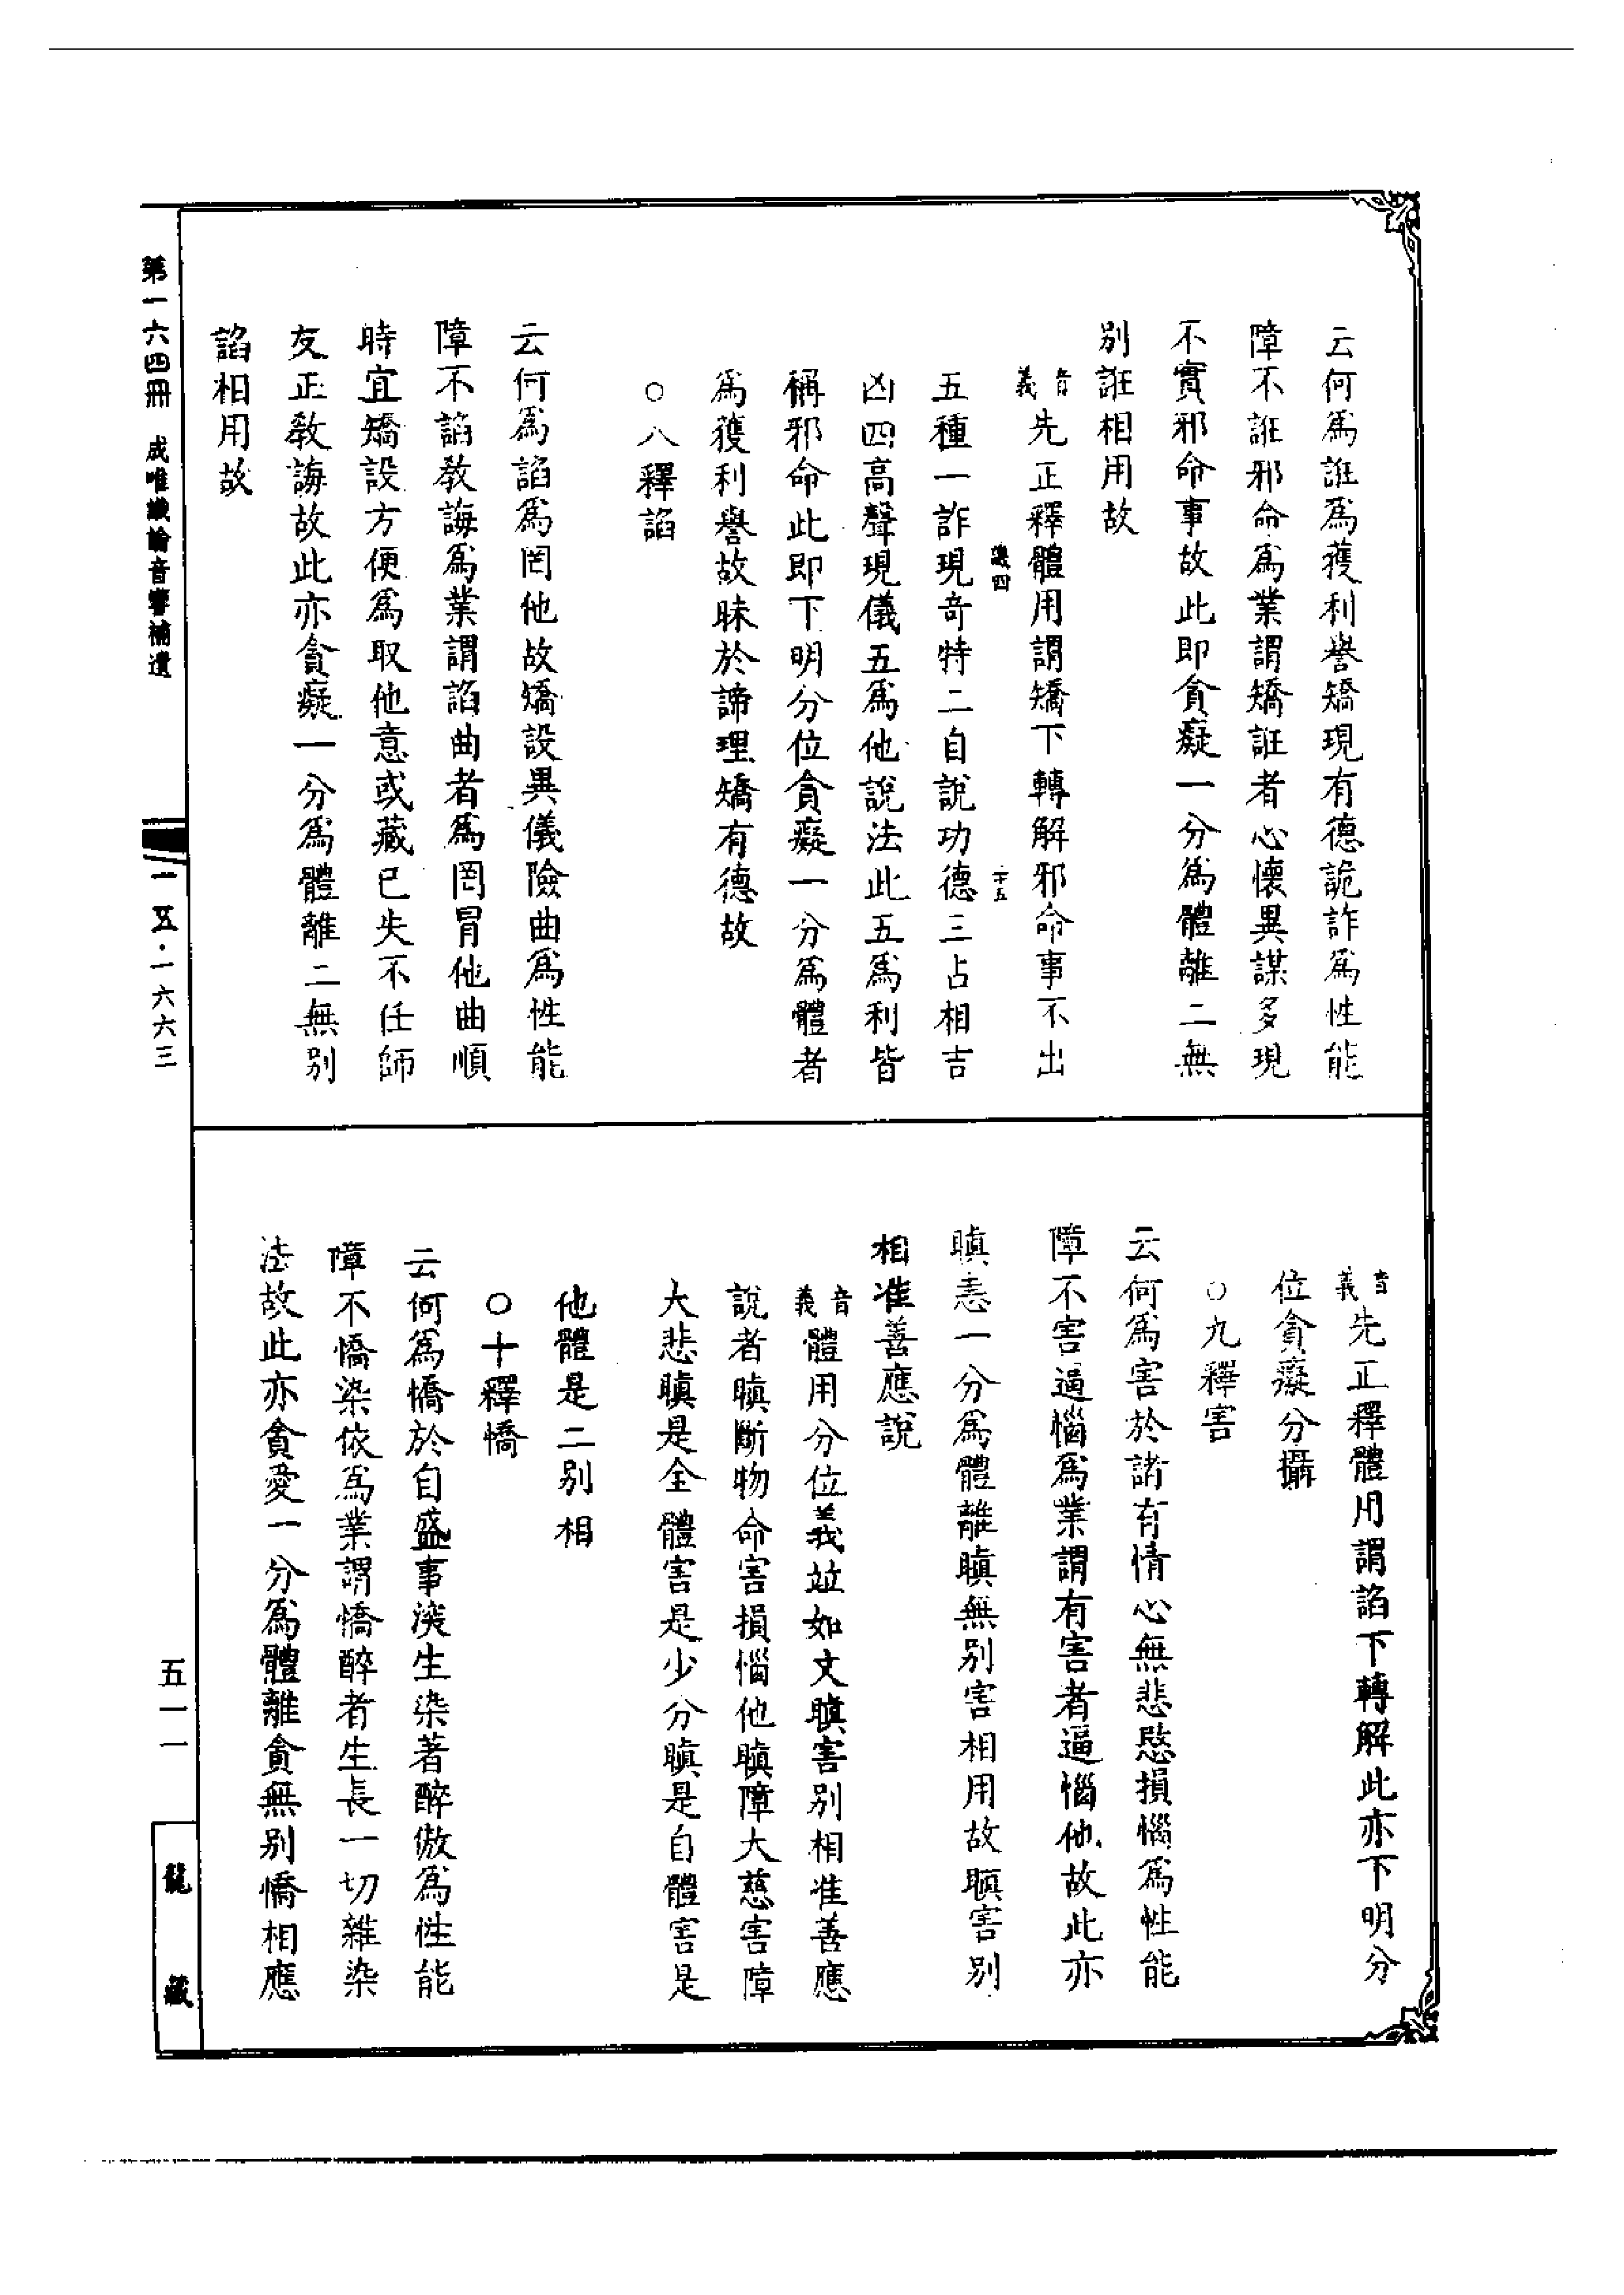 云何爲誑爲獲利譽矯現有德詭詐爲性能
障不誑邪命爲業謂矯誑者心懷異謀多現
不實邪命事故此即貪癡一分爲體離二無
別誑相用故
音義先正釋體用謂矯下轉解邪命事不出
五種一詐現奇特二自說功德三占相吉
凶四高聲現儀五爲他說法此五爲利皆
稱邪命此即下明分位貪癡一分爲體者
爲獲利譽故昧於諦理矯有德故
○八釋諂
云何爲諂爲罔他故矯設異儀險曲爲性能
障不諂教誨爲業謂諂曲者爲罔冒他曲順
時宜矯設方便爲取他意或藏己失不任師
友正教誨故此亦貪癡一分爲體離二無別
諂相用故
音義先正釋體用謂諂下轉解此亦下明分
位貪癡分攝
○九釋害
云何爲害於諸有情心無悲愍損惱爲性能
障不害逼惱爲業謂有害者逼惱他故此亦
瞋恚一分爲體離瞋無別害相用故瞋害別
相准善應說
音義體用分位義竝如文瞋害別相准善應
說者瞋斷物命害損惱他瞋障大慈害障
大悲瞋是全體害是少分瞋是自體害是
他體是二別相
○十釋憍
云何爲憍於自盛事深生染著醉傲爲性能
障不憍染依爲業謂憍醉者生長一切雜染
法故此亦貪愛一分爲體離貪無別憍相應
第一六四冊 成唯識論音響補遺
一五·一六六三
五一一
龍藏
識四
二十五